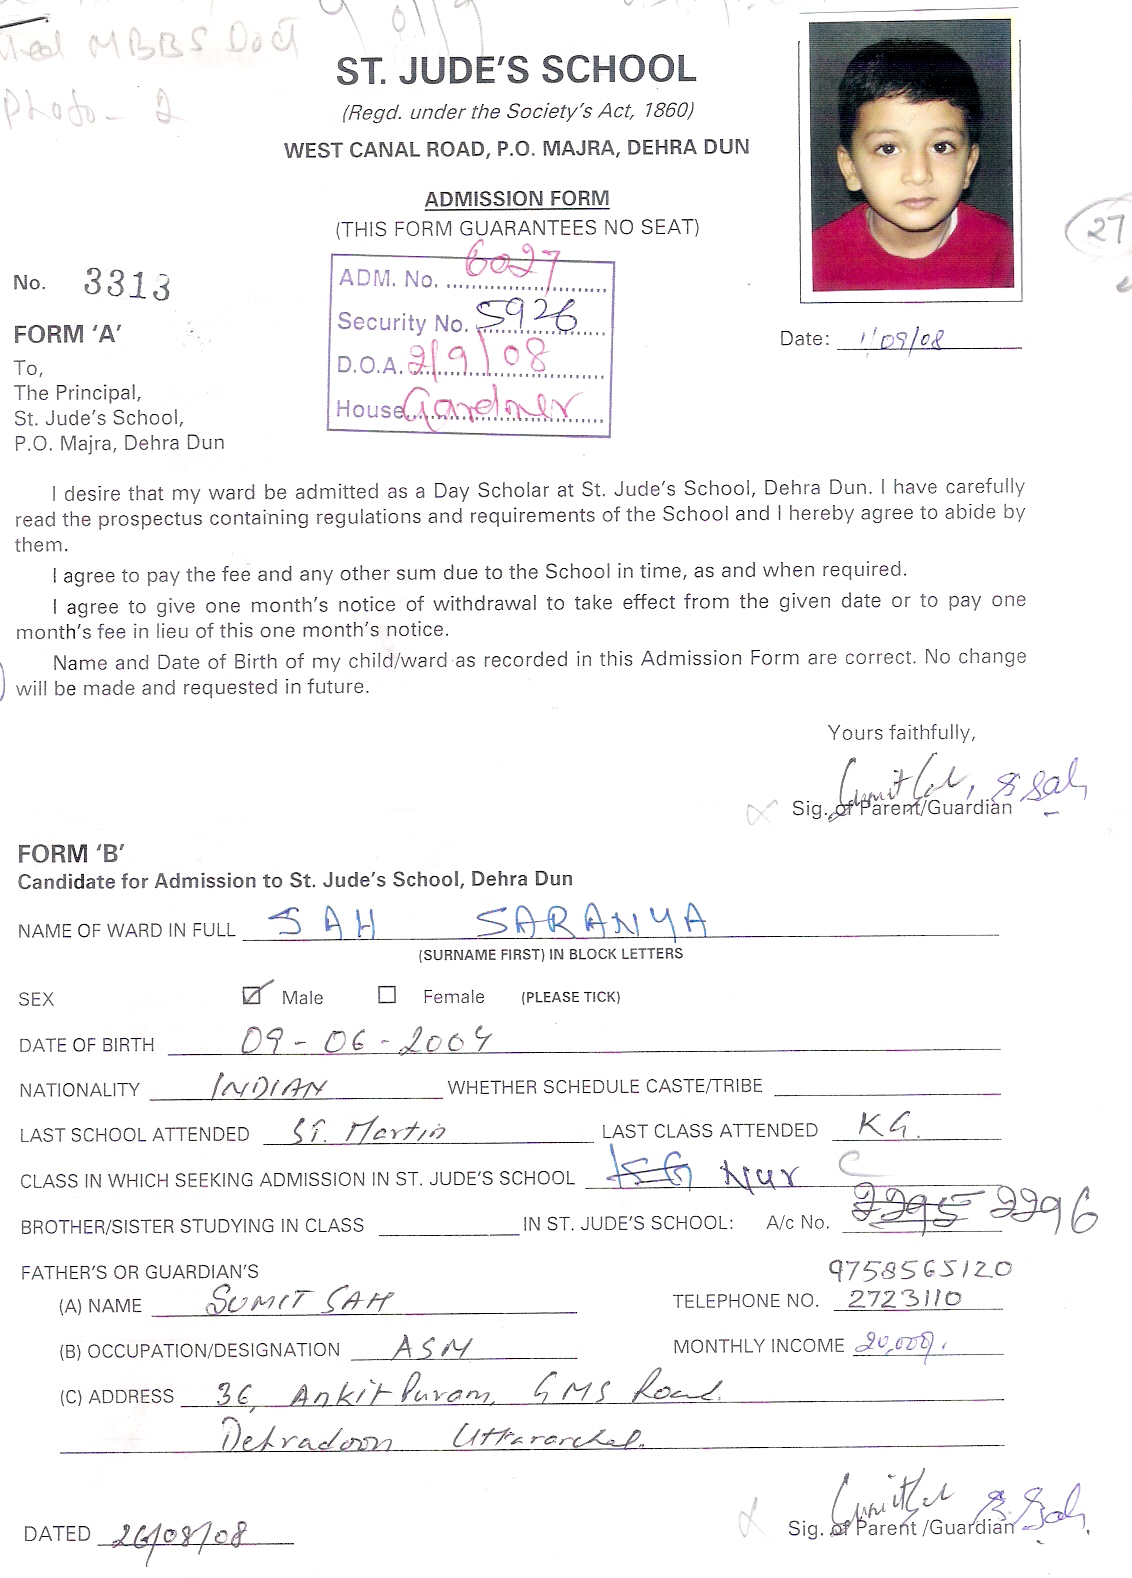 MBBS Doct
Photo - 2
ST. JUDE'S SCHOOL
(Regd. under the Society's Act, 1860)
WEST CANAL ROAD, P.O. MAJRA, DEHRA DUN
ADMISSION FORM
(THIS FORM GUARANTEES NO SEAT)
27
ADM. No. 6027
No. 3313
Security No. 5926
FORM 'A'
Date: 1/09/08
D.O.A. 2/9/08
To,
The Principal,
House Gardner
St. Jude's School,
P.O. Majra, Dehra Dun
I desire that my ward be admitted as a Day Scholar at St. Jude's School, Dehra Dun. I have carefully
read the prospectus containing regulations and requirements of the School and I hereby agree to abide by
them.
I agree to pay the fee and any other sum due to the School in time, as and when required.
I agree to give one month's notice of withdrawal to take effect from the given date or to pay one
month's fee in lieu of this one month's notice.
Name and Date of Birth of my child/ward as recorded in this Admission Form are correct. No change
will be made and requested in future.
Yours faithfully,
Sig. of Parent/Guardian
FORM 'B'
Candidate for Admission to St. Jude's School, Dehra Dun
NAME OF WARD IN FULL SAH SARANYA
(SURNAME FIRST) IN BLOCK LETTERS
SEX Male Female (PLEASE TICK)
DATE OF BIRTH 09-06-2004
NATIONALITY INDIAN WHETHER SCHEDULE CASTE/TRIBE
LAST SCHOOL ATTENDED ST. Martin LAST CLASS ATTENDED KG.
CLASS IN WHICH SEEKING ADMISSION IN ST. JUDE'S SCHOOL KG Nur C
BROTHER/SISTER STUDYING IN CLASS IN ST. JUDE'S SCHOOL: A/c No. 2295 2296
FATHER'S OR GUARDIAN'S 9758565120
(A) NAME SUMIT SAH TELEPHONE NO. 2723110
(B) OCCUPATION/DESIGNATION ASM MONTHLY INCOME 20,000/.
(C) ADDRESS 36, Ankit Puram, GMS Road.
Dehradoon Uttaranchal.
DATED 26/08/08 Sig. of Parent /Guardian